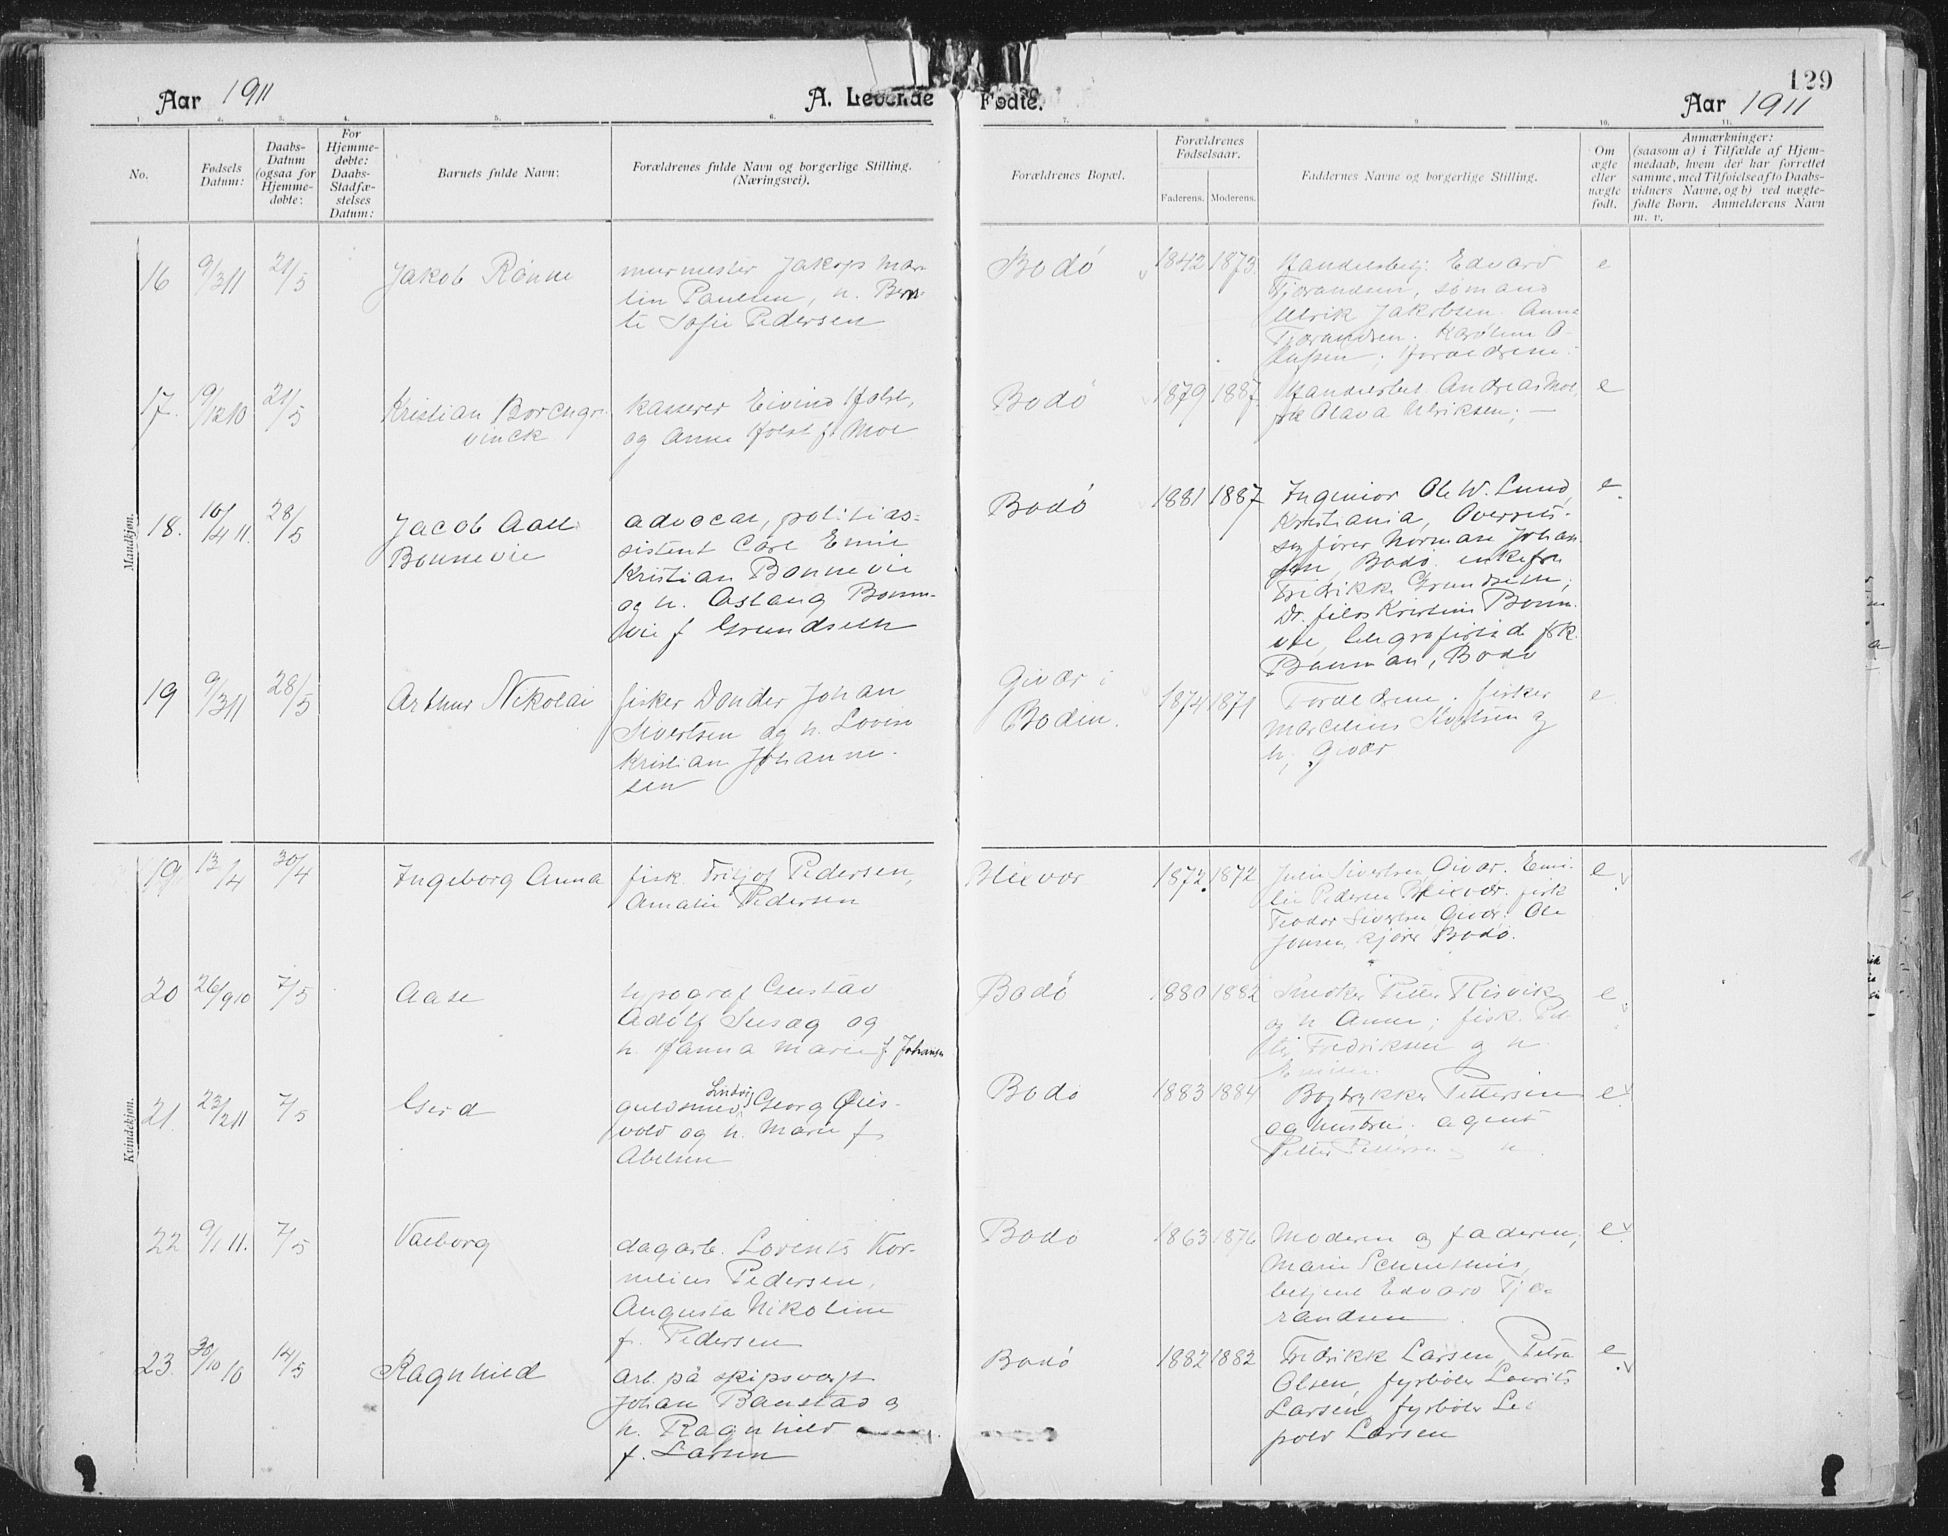 129
Aar 1911
A. Levende Fødte.
Aar 1911
1. 2. 3. 4. 5. 6. 7. 8 9 10. 11.
No.
Fødsels Datum:
Daabs-
Datum
(ogsaa for
Hjemme-
døbte:
For
Hjemme-
døbte:
Daabs-
Stadfæ-
stelses
Datum:
Barnets fulde Navn:
Forældrenes fulde Navn og borgerlige Stilling.
(Næringsvei).
Forældrenes Bopæl.
Forældrenes
Fødselsaar.
Faderens. Moderens.
Faddernes Navne og borgerlige Stilling.
Om
ægte
eller
uægte
født.
Anmærkninger:
(saasom a) i Tilfælde af Hjem-
medaab, hvem der har forrettet
samme, med Tilføielse af to Daabs-
vidners Navne, og b) ved uægte-
fødte Børn. Anmelderens Navn
m. v.
Mandkjøn.
16 9/3 11 21/5 Jakob Rønne
murmester Jakop Mar-
tin Paulsen, h. Bern-
te Sofie Pedersen
Bodø 1842 1873
Handelsbetj. Edvard
Tjærandsen, sømand
Ulrik Jakobsen. Anna
Tjærandsen. Karoline O-
lufsen; forældrene.
e
17. 19/12 10 21/5 Kristian Borchgre-
vinck
kasserer Eivind Holst,
og Anna Holst f. Moe
Bodø 1879 1887.
Handelsbet. Andreas Moe,
frk Olava Ulriksen; —
e
18. 10/4 11. 28/5 Jacob Aall
Bonnevie
advocat, politias-
sistent Carl Emil
Kristian Bonnevie
og h. Aslaug Bonne-
vie f Grundseth
Bodø 1881 1887
Ingeniør Ole W. Lund,
Kristiania, Overrets-
sagfører Norman Johan-
sen, Bodø. enkefru
Fredrikke Grundseth;
Dr. filos Kristine Bonne-
vie, telegrafistinde frk.
Bauman, Bodø
e.
19 9/3 11 28/5 Arthur Nikolai
fisker Donder Johan
Sivertsen og h. Lovise
Kristian Johanne-
sen
Givær i
Bodin.
1874 1871
Forældrene. fisker
Marcelius Sivertsen og
h; Givær
e.
Kvindekjøn.
19 13/4 30/4 Ingeborg Anna
fisk. Fritjof Pedersen,
Amalie Pedersen
Blixvær 1872. 1872
Julie Sivertsen Givær. Emi-
lie Pedersen Blixvær. fisk
Teodor Sivertsen Givær. Ole
Jensen, kjører Bodø.
e
20 26/9 10 7/5 Aase
typograf Gustav
Adolf Susag og
h. Hanna Marie f Johansen
Bodø 1880 1882
Snedker Petter Risvik
og h Anna; fisk. Pet-
ter Fredriksen og h.
e
21. 23/2 11 7/5 Gerd
guldsmed Ludvig Georg Øies-
vold og h. Marie f
Abelsen
Bodø 1883 1884
Bogtrykker Pettersen
og hustru. agent
Petter Pettersen og h.
e
22 9/1 11. 7/5 Valborg
dagarb. Lorents Kor-
nelius Pedersen,
Augusta Nikoline
f. Pedersen
Bodø 1863 1876
Moderen og faderen;
Marie Schultenius,
betjent Edvard Tjæ-
randsen.
e.
23. 30/10 10 14/5 Ragnhild
arb. på skipsværft
Johan Banstad og
h. Ragnhild
f. Larsen
Bodø 1882 1882
Fredrikk Larsen, Petra
Olsen, fyrbøter Laurits
Larsen, fyrbøter Leo-
pold Larsen
e